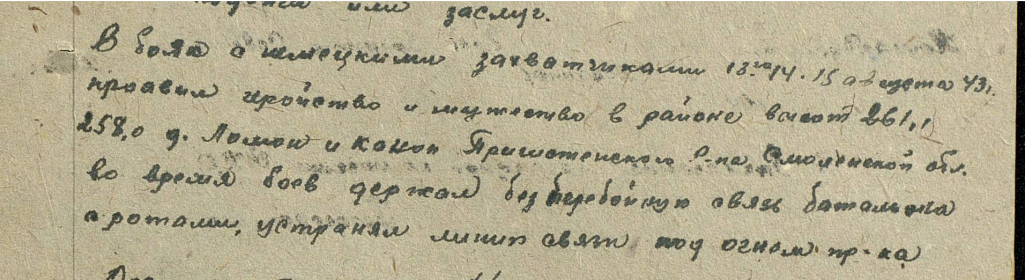 или заслуг.
В боях с немецкими захватчиками 13го 14. 15 августа 43г.
проявил геройство и мужество в районе высот 261,1
258,0 д. Ломон и Конон Пригистенского р-на Смоленской обл.
во время боев держал безперебойную связь баталиона
с ротами, устранял линии связи под огнем пр-ка